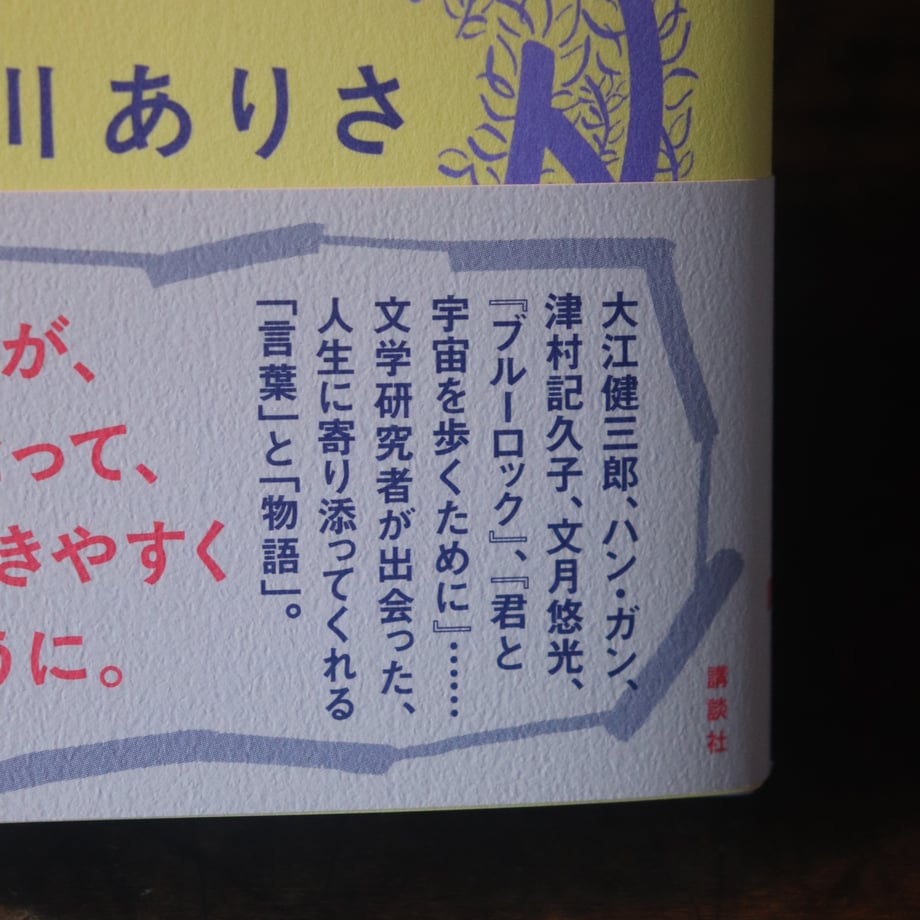 川ありさ
大江健三郎、ハン・ガン、
津村記久子、文月悠光、
『ブルーロック』、『君と
宇宙を歩くために』……
文学研究者が出会った、
人生に寄り添ってくれる
「言葉」と「物語」。
が、
って、
きやすく
うに。
講談社